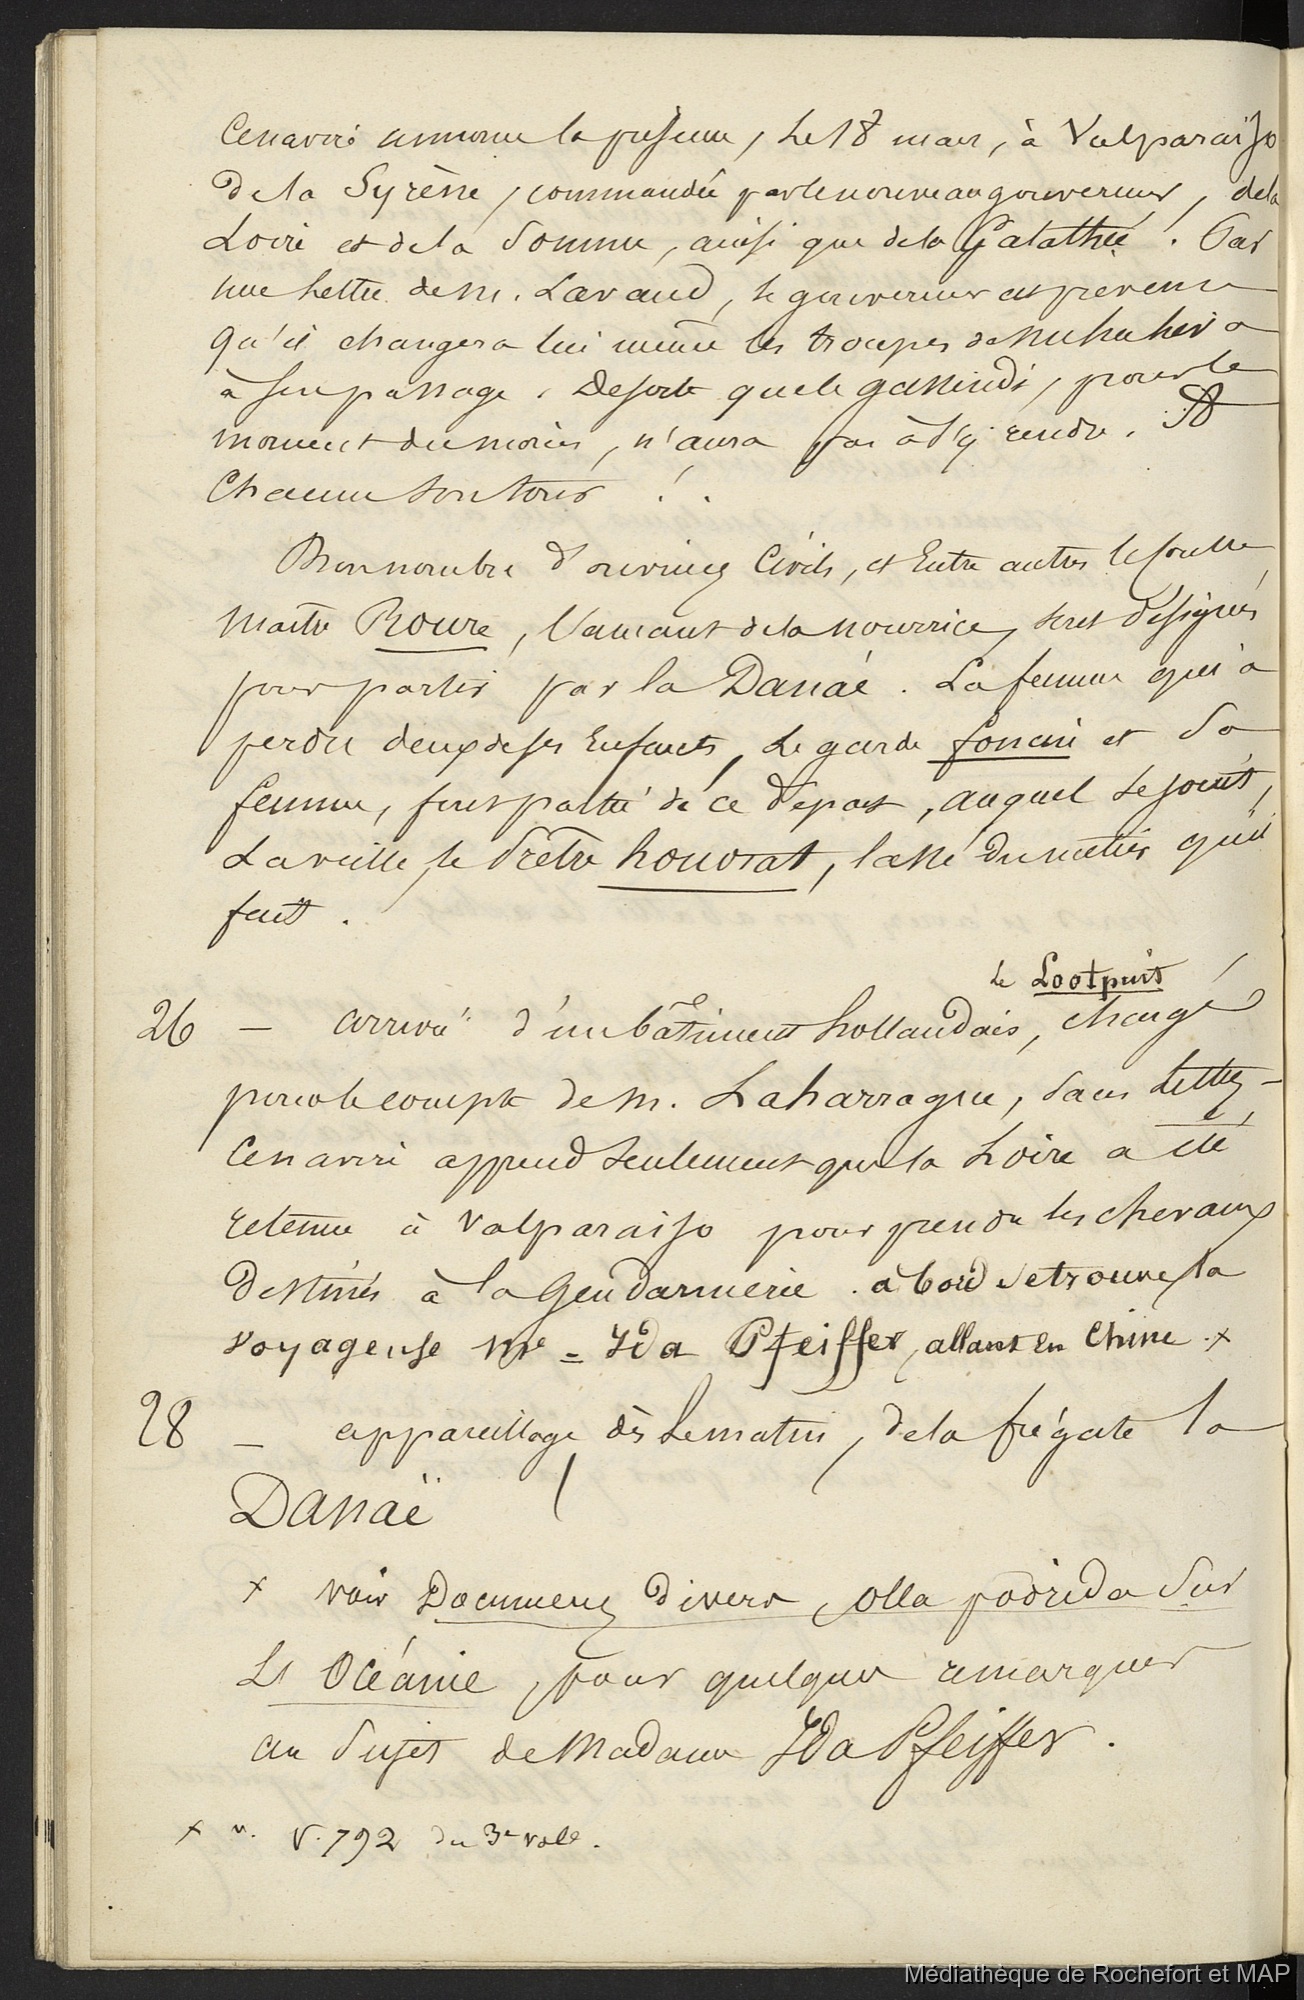 Ce navire annonce la présence, le 18 mars, à Valparaiso
de la Syrène, commandée par le nouveau gouverneur, de la
Loire et de la Somme, ainsi que de la Galathée. Par
une lettre de m. Lavaud, le gouverneur est prévenu
qu'il changera lui même les troupes de nuhuhiva
à son passage. De sorte que le gassendi, pour le
moment du moins, n'aura pas à s'y rendre.
Chacun son tour !.
Bon nombre d'ouvriers Civils, et Entre autres le
maître Roure, l'amant de la nourrice, sont désignés
pour partir par la Danaé. La femme qui a
perdu deux de ses Enfants, le garde fonani et sa
femme, font partie de ce départ, auquel se joint,
la veille, le Prêtre honorat, lassé du métier qu'il
fait.
le Lootpuit
26 — arrivée d'un bâtiment hollandais, chargé
pour le compte de m. Laharrague, sans lettres —
Ce navire apprend seulement que la Loire a été
retenue à Valparaiso pour prendre les chevaux
destinés à la Gendarmerie. à bord se trouve la
voyageuse me = Ida Pfeiffer, allant en Chine. x
28 — appareillage dès le matin, de la frégate la
Danaë
x voir Documens divers, olla podrida sur
L'Océanie, pour quelques remarques
au sujet de Madame Ida Pfeiffer.
x v. P. 792 du 3e vole.
Médiathèque de Rochefort et MAP